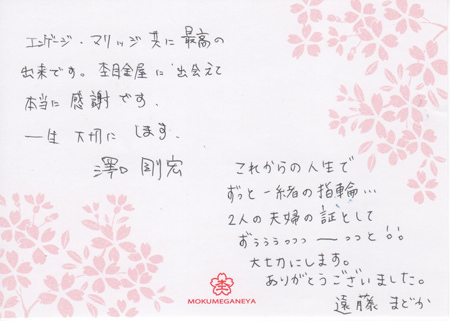 エンゲージ・マリッジ共に最高の
出来です。杢目金屋に出会えて
本当に感謝です。
一生大切にします。
澤口 剛宏
これからの人生で
ずっと一緒の指輪…
2人の夫婦の証として
ずぅぅぅっっっーっっと!!
大切にします。
ありがとうございました。
遠藤 まどか
杢
MOKUMEGANEYA